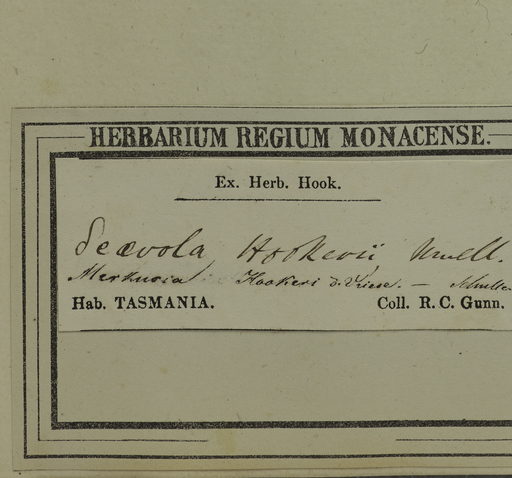 HERBARIUM REGIUM MONACENSE.
Ex. Herb. Hook.
Scævola Hookerii Muell.
Merkusia Hookeri d. Vriese. —
Hab. TASMANIA. Coll. R. C. Gunn.